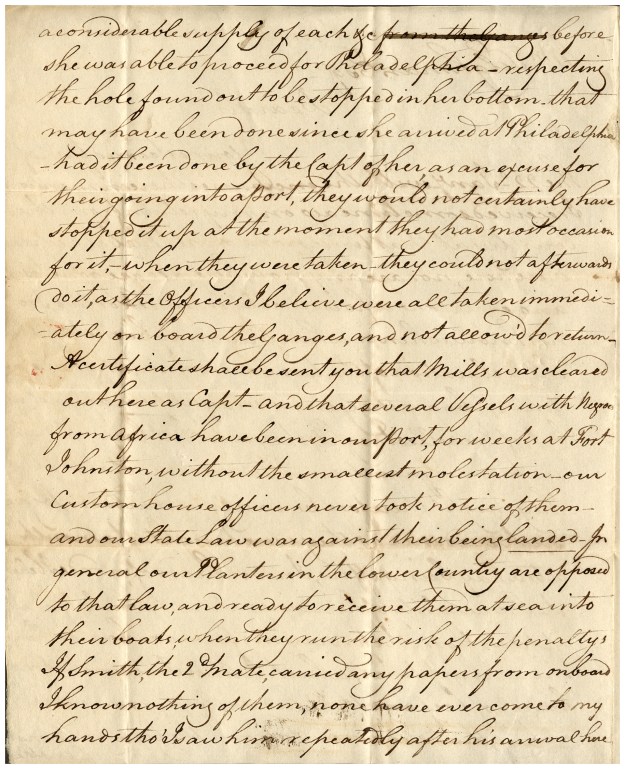 a considerable supply of each &c from the Ganges before
she was able to proceed for Philadelphia – respecting
the hole found out to be stopped in her bottom – that
may have been done since she arrived at Philadelphia
– had it been done by the Capt of her, as an excuse for
their going into a Port, they would not certainly have
stopped it up at the moment they had most occasion
for it, – when they were taken – they could not afterwards
do it, as the Officers I believe were all taken immedi-
-ately on board the Ganges, and not allow'd to return –
A certificate shall be sent you that Mills was cleared
out here as Capt – and that several Vessels with Negroe
from Africa have been in our Port, for weeks at Fort
Johnston, without the smallest molestation – our
Custom house officers never took notice of them –
and our State Law was against their being landed – In
general our Planters in the lower Country are opposed
to that law, and ready to receive them at sea into
their boats, when they run the risk of the penaltys
If Smith, the 2d Mate carried any papers from onboard
I know nothing of them, none have ever come to my
hands tho' I saw him repeatedly after his arrival here